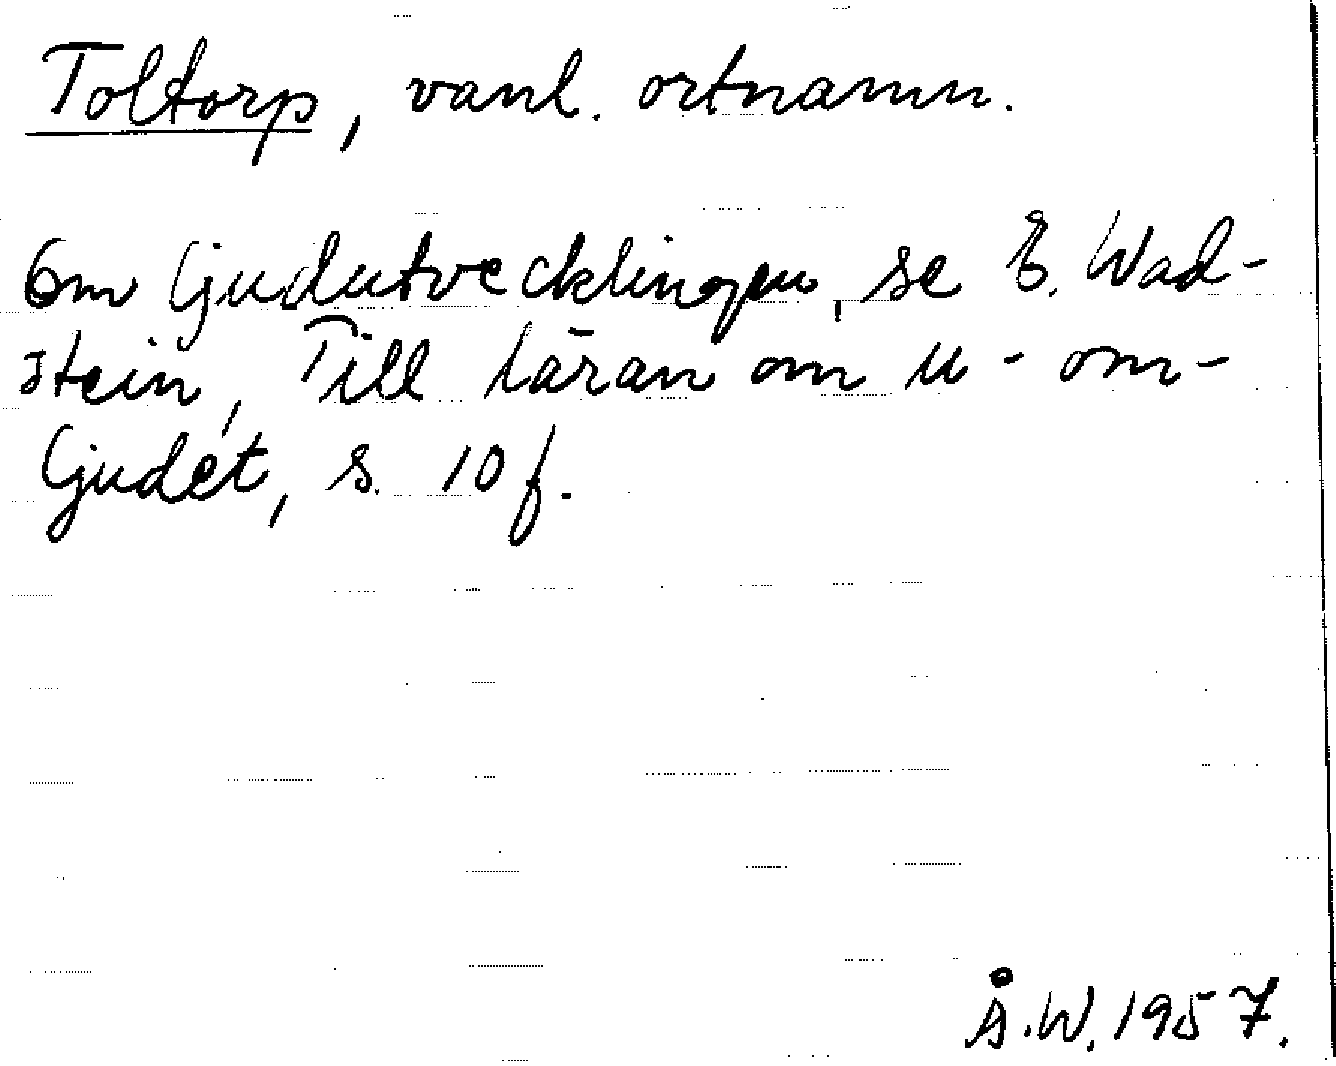 Toltorp, vanl. ortnamn.
Om ljudutvecklingen, se E. Wad-
stein, Till läran om u-om-
ljudet, s. 10 f.
Å.W. 1957.